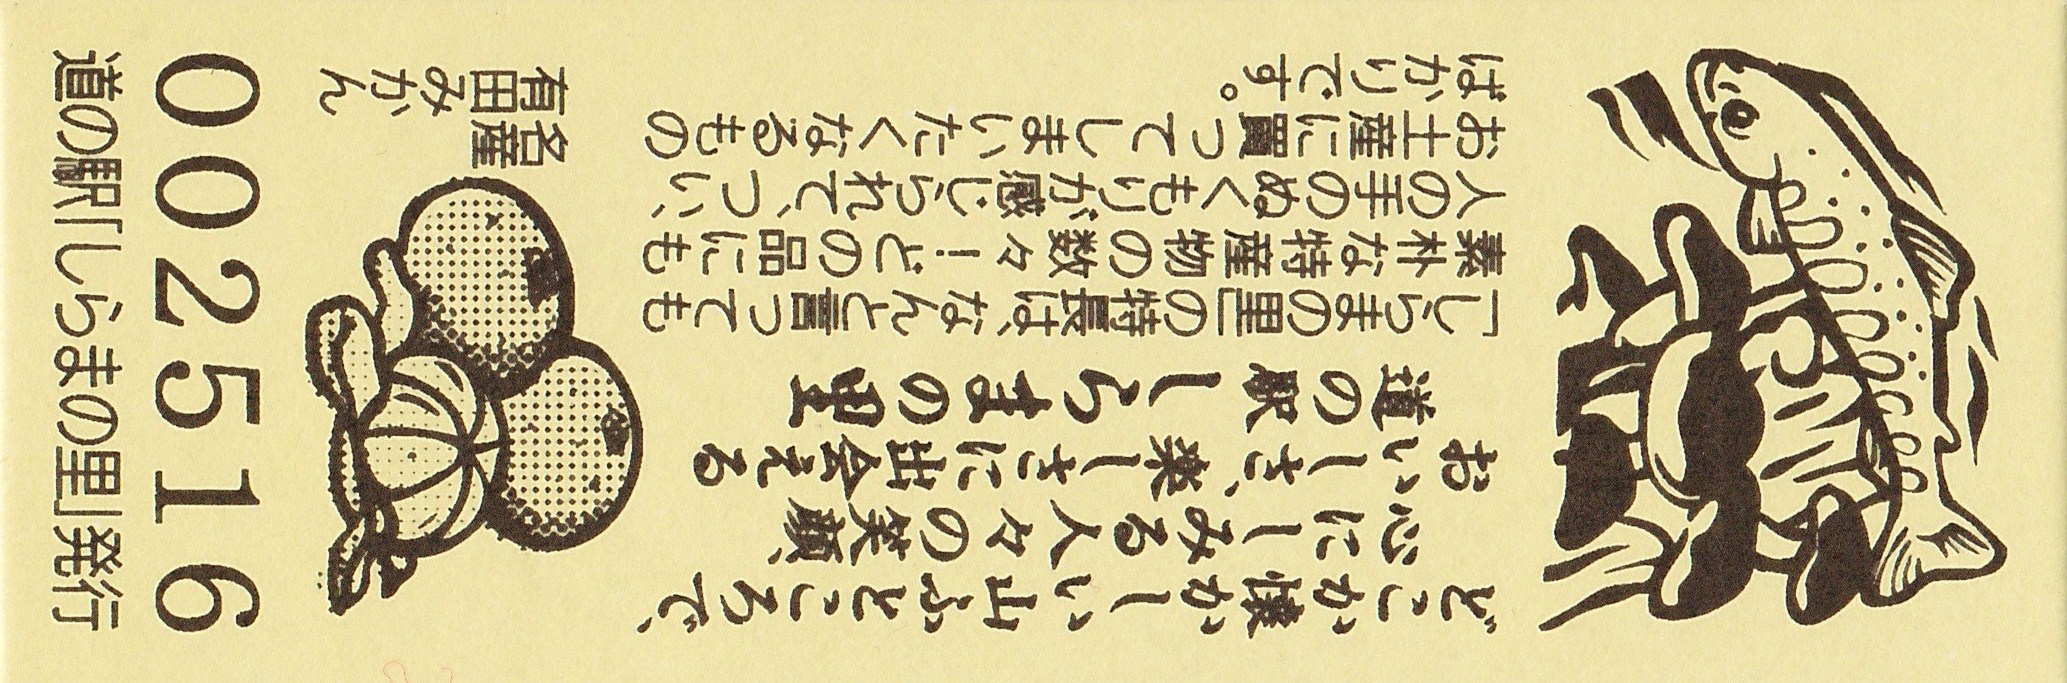 どこか懐かしい山ふところで、
心にしみる人々の笑顔、
おいしさ、楽しさに出会える
道の駅しらまの里
「しらまの里」の特長は、なんと言っても
素朴な特産物の数々！どの品にも
人の手のぬくもりが感じられて、つい、
お土産に買ってしまいたくなるもの
ばかりです。
名産
有田みかん
002516
道の駅「しらまの里」発行